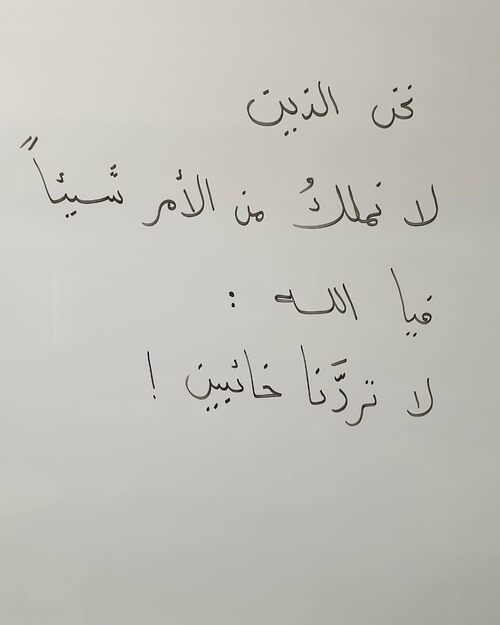 نحن الذين
لا نملكُ من الأمر شيئاً
فيا الله :
لا تردَّنا خائبين !